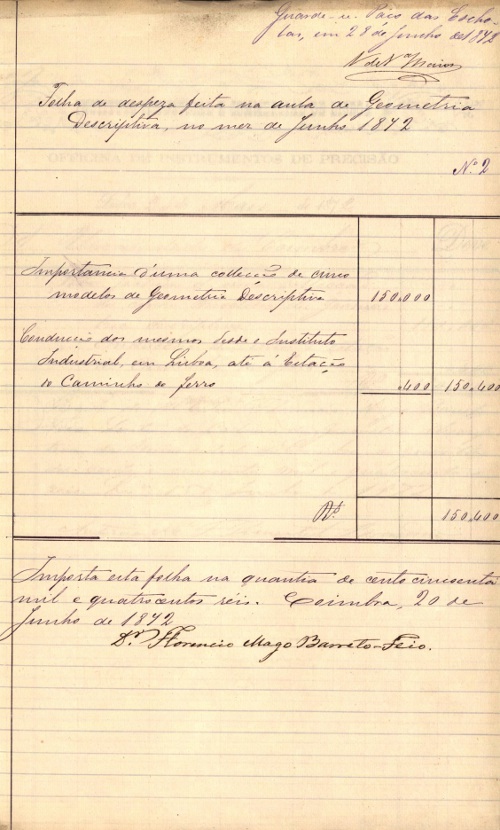 Guarde-se. Paço das Escho-
las, em 28 de Junho de 1872
Folha de despeza feita na aula de Geometria
Descriptiva, no mez de Junho 1872
OFFICINA DE INSTRUMENTOS DE PRECISÃO
N.º 2
Importancia d'uma collecção de cinco
modelos de Geometria Descriptiva 150.000
Conducção dos mesmos desde o Instituto
Industrial, em Lisboa, até á Estação
do Caminho de ferro .400 150.400
R.s 150.400
Importa esta folha na quantia de cento cincoenta
mil e quatrocentos reis. Coimbra, 20 de
Junho de 1872
D.r Florencio Mago Barreto-Feio.